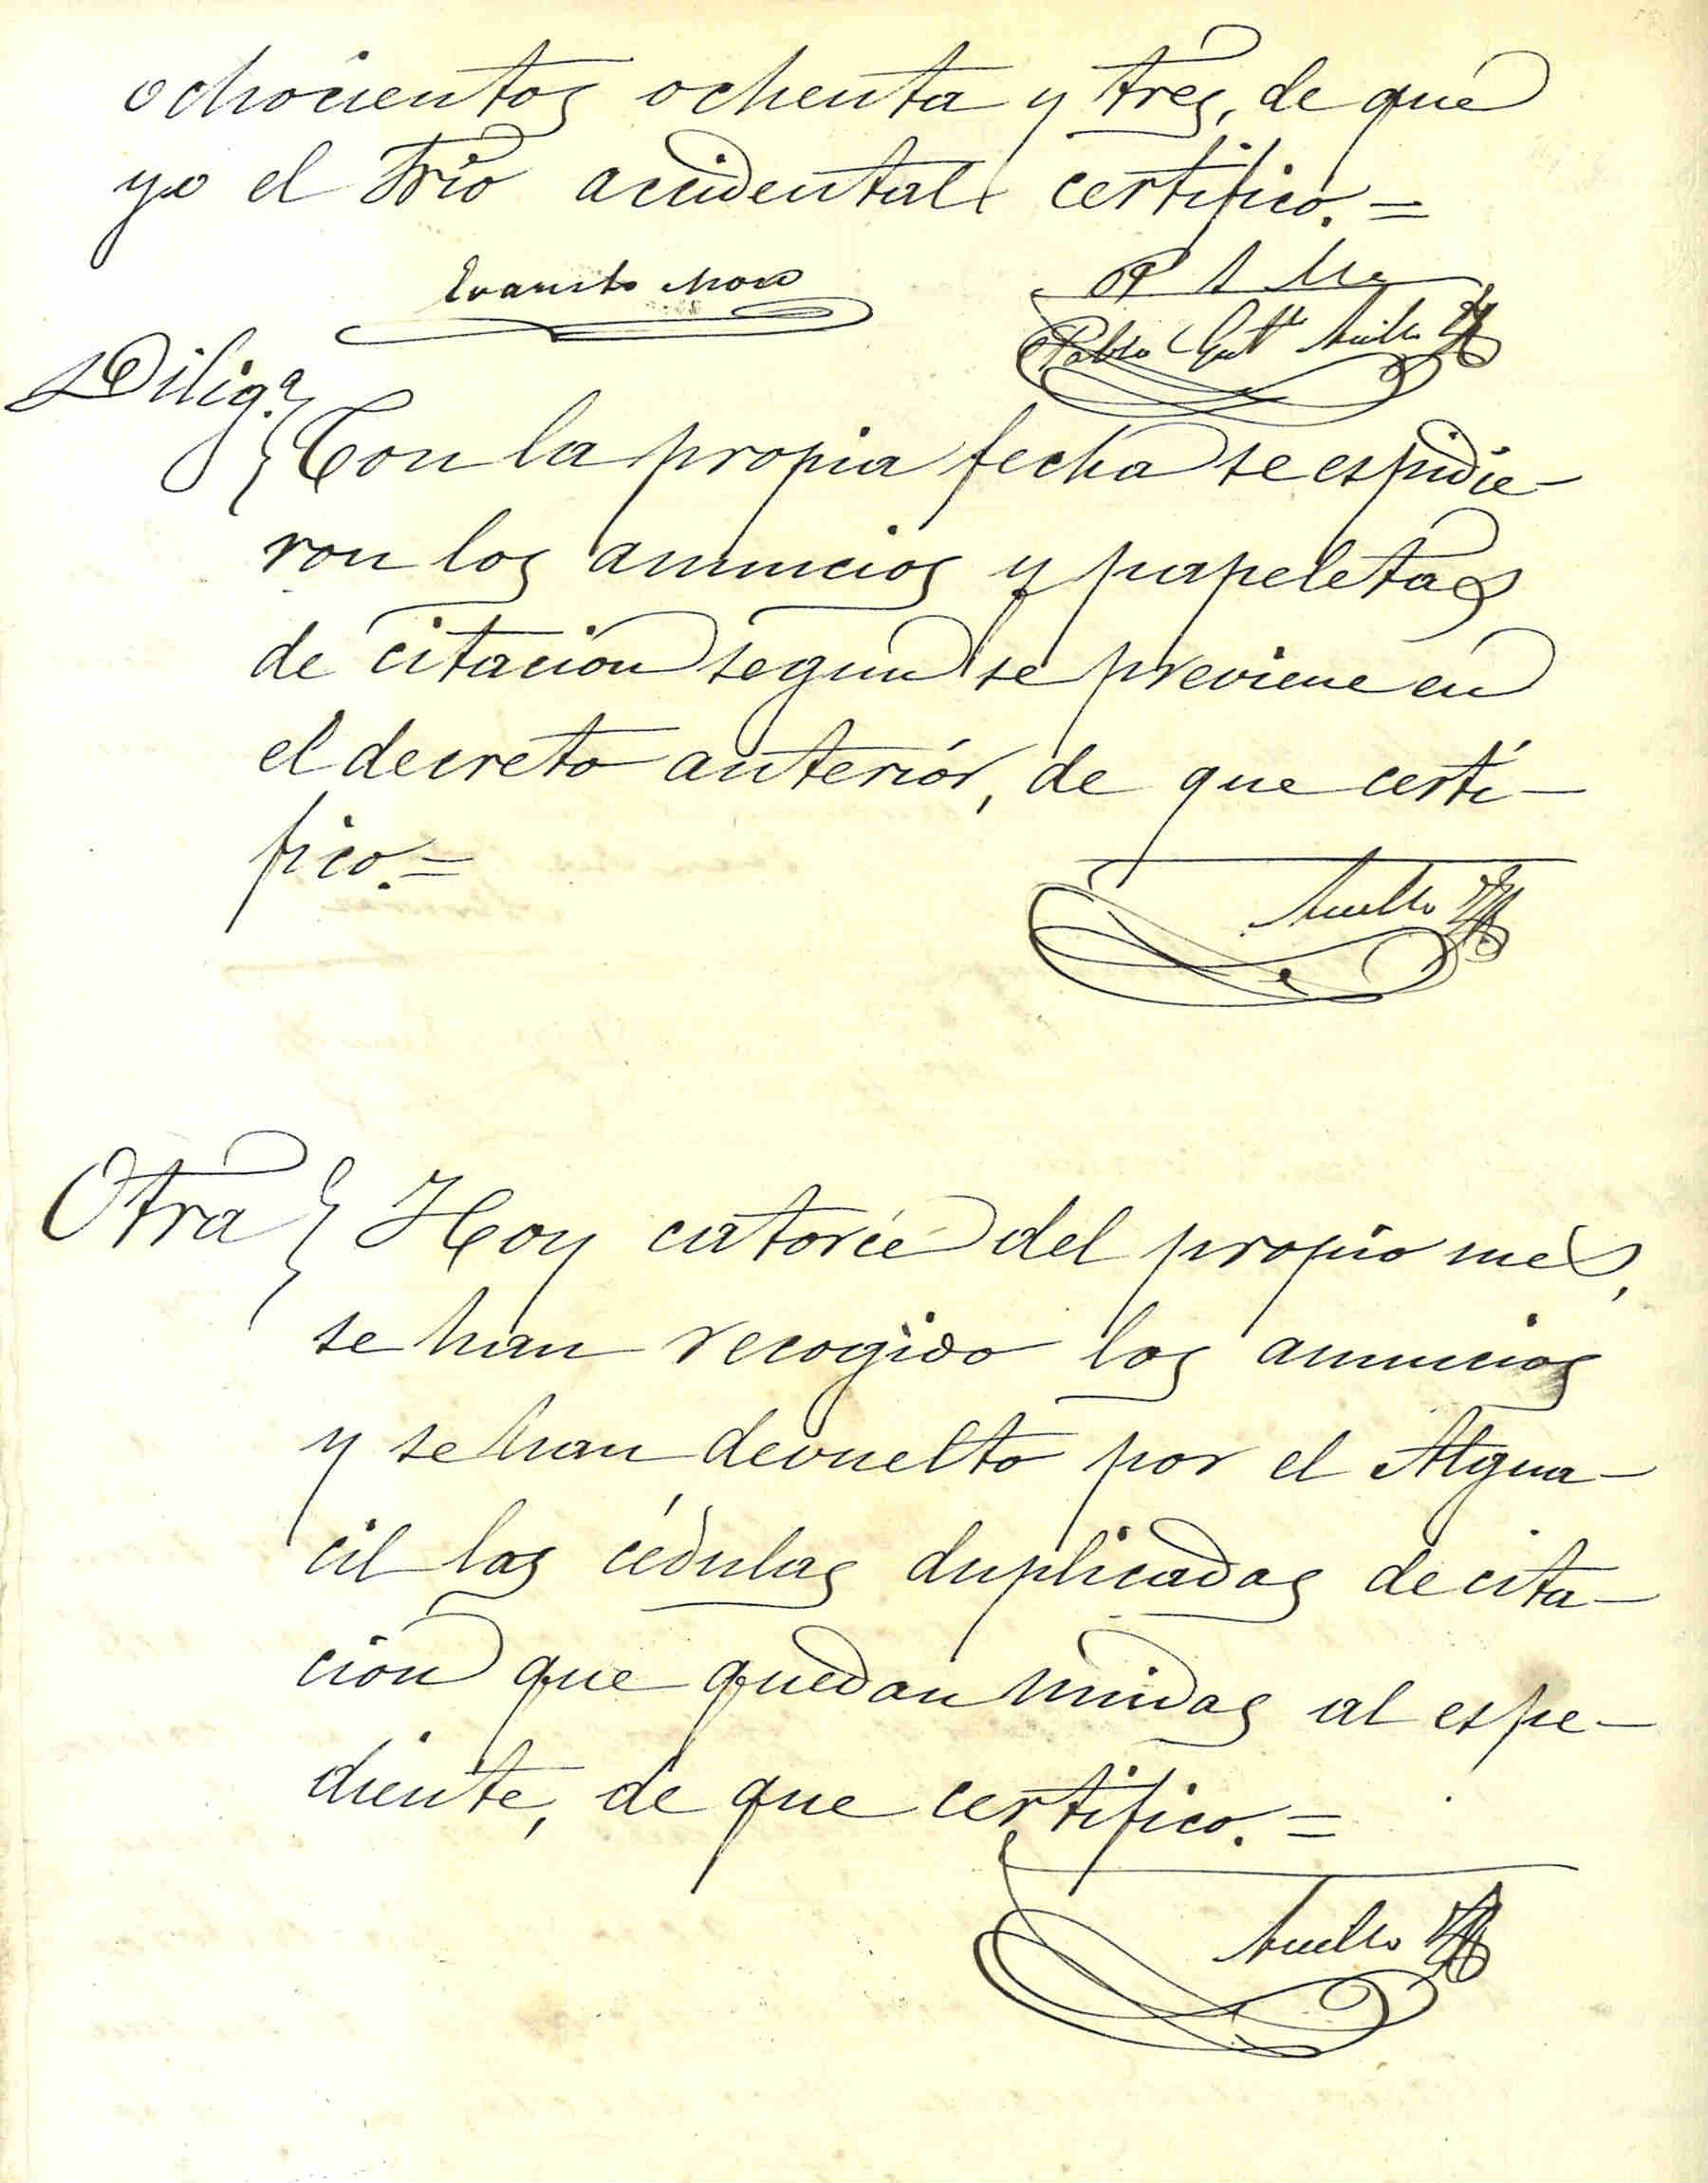 ochocientos ochenta y tres, de que
yo el Srio accidental certifico. =
Evaristo
Pablo Gut.
Dilig.ª
Con la propia fecha se espidie-
ron los anuncios y papeletas
de citacion segun se previene en
el decreto anteriór, de que certi-
fico. =
Otra Hoy catorce del propio mes,
se han recogido los anuncios
y se han devuelto por el Algua-
cil las cédulas duplicadas de cita-
cion que quedan unidas al espe-
diente, de que certifico. =